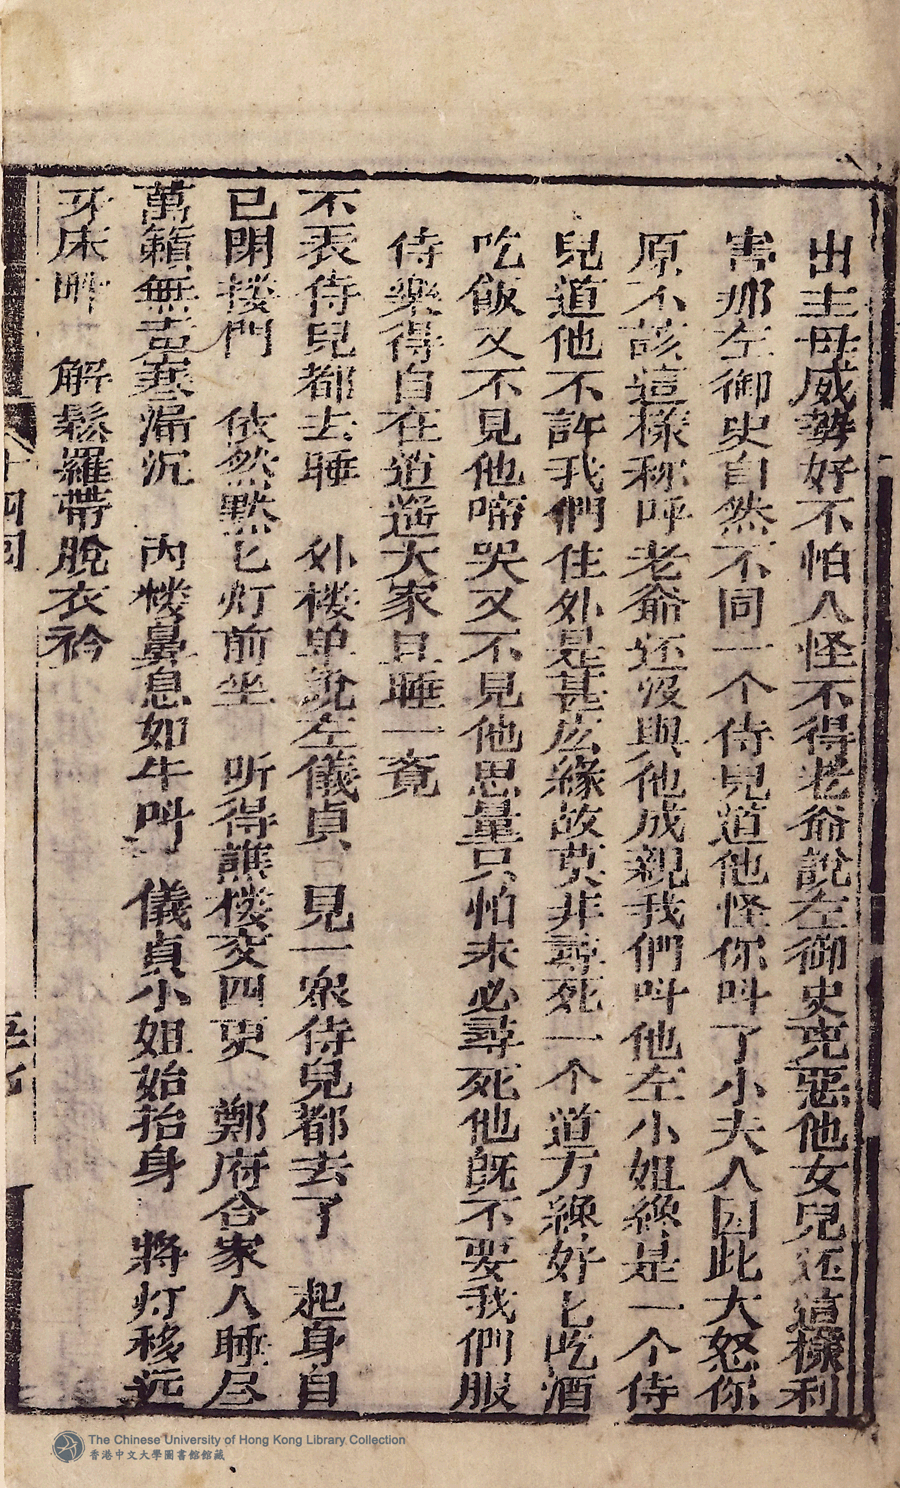 出主母威勢好不怕人怪不得老爺說左御史兇惡他女兒还這樣利
害那左御史自然不同一个侍兒道他怪你呌了小夫人因此大怒你
原不該這樣称呼老爺还沒與他成親我們呌他左小姐纔是一个侍
兒道他不許我們住外是甚庅緣故莫非尋死一个道方纔好匕吃酒
吃飯又不見他啼哭又不見他思量只怕未必尋死他既不要我們服
侍樂得自在逍遥大家且睡一覔
不表侍兒都去睡 外樓单說左儀貞 見一眾侍兒都去了 起身自
已閉楼門 依然黙匕灯前坐 听得譙楼交四更 鄭府合家人睡尽
萬籟無声寒漏沉 內楼鼻息如牛呌 儀貞小姐始抬身 將灯移远
牙床畔 解鬆羅帶脫衣衿
十四回
The Chinese University of Hong Kong Library Collection
香港中文大學圖書館館藏